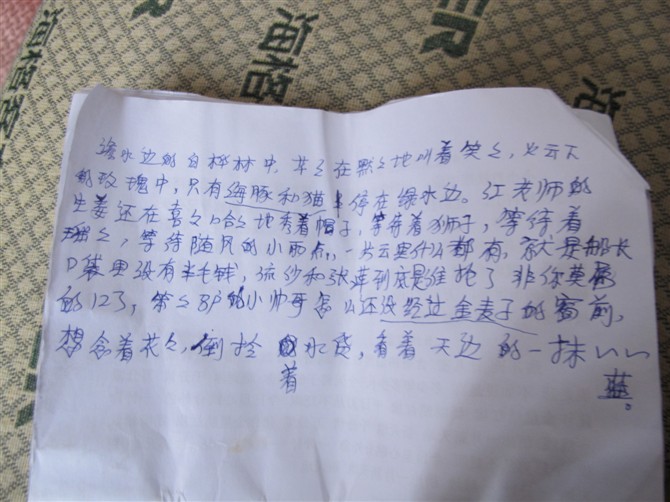 绿水边的白桦林中，草々在默々地叫着笑々，火云下
的玫瑰中，只有海豚和猫停在绿水边。江老师的
生姜还在喜々哈々地秀着帽子，等待着狮子，等待着
珊々，等待随风的小雨点，一片云里什么都有，就是船长
口袋里没有半毛钱，流沙和张草到底是谁抢了非你莫属
的123，笨々8P的小帅哥怎么还没经过金麦子的窗前，
想念着花々，倒拴着水袋，看着天边的一抹
蓝。
海塔
ER